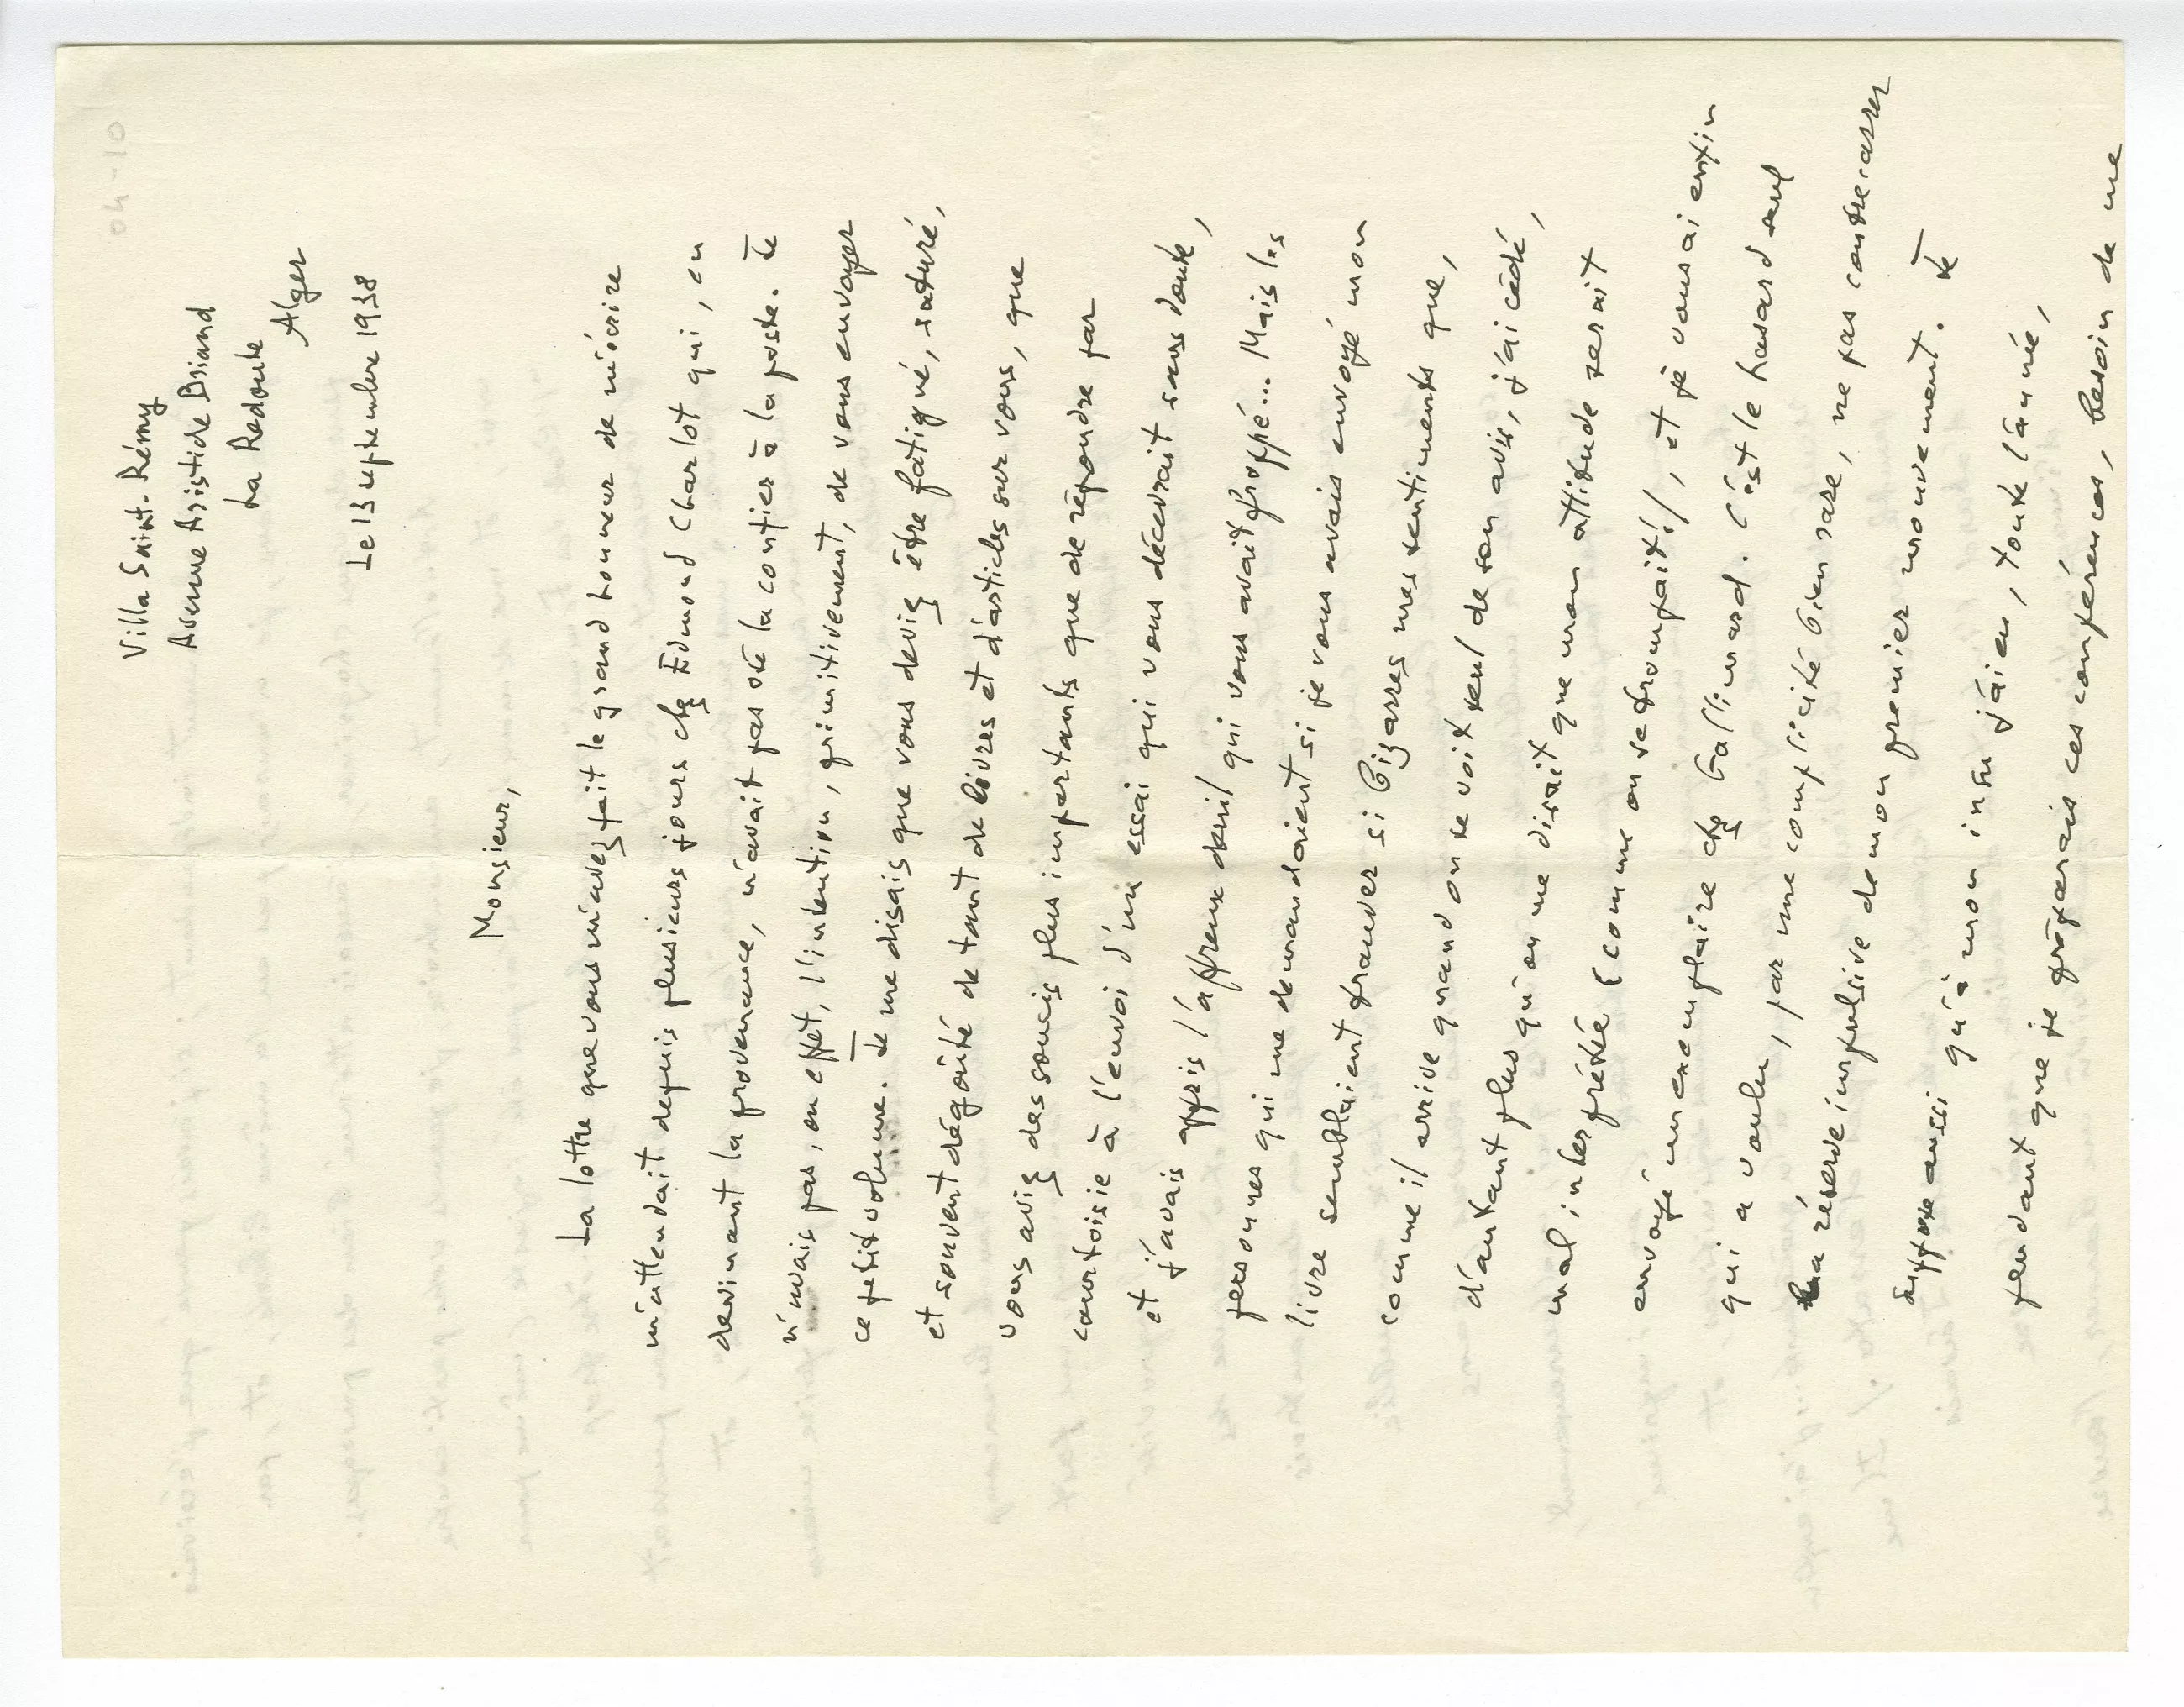 Villa Saint-Rémy
Avenue Aristide Briand
La Redoute
Alger
Le 13 septembre 1938
Monsieur,
La lettre que vous m'avez fait le grand honneur de m'écrire
m'attendait depuis plusieurs jours chez Edmond Charlot qui, en
devinant la provenance, n'avait pas osé la confier à la poste. Je
n'avais pas, en effet, l'intention, primitivement, de vous envoyer
ce petit volume. Je me disais que vous deviez être fatigué, saturé,
et souvent dégoûté de tant de livres et d'articles sur vous, que
vous aviez des soucis plus importants que de répondre par
courtoisie à l'envoi d'un essai qui vous décevrait sans doute,
et j'avais appris l'affreux deuil qui vous avait frappé... Mais les
personnes qui me demandaient si je vous avais envoyé mon
livre semblaient trouver si bizarres mes sentiments que,
comme il arrive quand on se voit seul de son avis, j'ai cédé,
d'autant plus qu'on me disait que mon attitude serait
mal interprétée (comme on se trompait!), et je vous ai enfin
envoyé un exemplaire chez Gallimard. C'est le hasard seul
qui a voulu, par une complicité bien rare, ne pas contrecarrer
la réserve impulsive de mon premier mouvement. Je
suppose aussi qu'à mon insu j'ai eu, toute l'année,
pendant que je préparais ces conférences, besoin de me